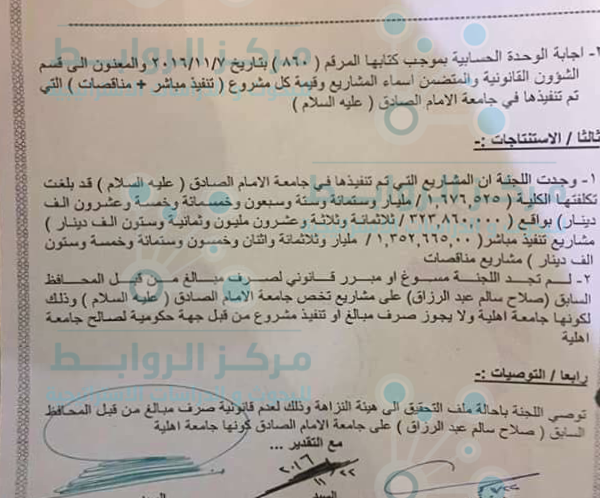 ٢- اجابة الوحدة الحسابية بموجب كتابها المرقم ( ٨٦٠ ) بتاريخ ٢٠١٦/١١/٧ والمعنون الى قسم
الشؤون القانونية والمتضمن اسماء المشاريع وقيمة كل مشروع ( تنفيذ مباشر + مناقصات ) التي
تم تنفيذها في جامعة الامام الصادق ( عليه السلام )
ثالثا / الاستنتاجات :-
١- وجدت اللجنة ان المشاريع التي تم تنفيذها في جامعة الامام الصادق ( عليه السلام ) قد بلغت
تكلفتها الكلية ( ١,٦٧٦,٥٢٥ / مليار وستمائة وستة وسبعون وخمسمائة وخمسة وعشرون الف
دينار) بواقع ( ٣٢٣,٨٦٠,٠٠٠ / ثلاثمائة وثلاثة وعشرون مليون وثمانية وستون الف دينار )
مشاريع تنفيذ مباشر( ١,٣٥٢,٦٦٥,٠٠ / مليار وثلاثمائة واثنان وخمسون وستمائة وخمسة وستون
الف دينار ) مشاريع مناقصات
٢- لم تجد اللجنة مسوغ او مبرر قانوني لصرف مبالغ من قبل المحافظ
السابق (صلاح سالم عبد الرزاق) على مشاريع تخص جامعة الامام الصادق ( عليه السلام ) وذلك
لكونها جامعة اهلية ولا يجوز صرف مبالغ او تنفيذ مشروع من قبل جهة حكومية لصالح جامعة
اهلية
مركز الروابط
رابعا / التوصيات :-
توصي اللجنة باحالة ملف التحقيق الى هيئة النزاهة وذلك لعدم قانونية صرف مبالغ من قبل المحافظ
السابق ( صلاح سالم عبد الرزاق ) على جامعة الامام الصادق كونها جامعة اهلية
مع التقدير ...
٢٠١٦
١١/٢٢